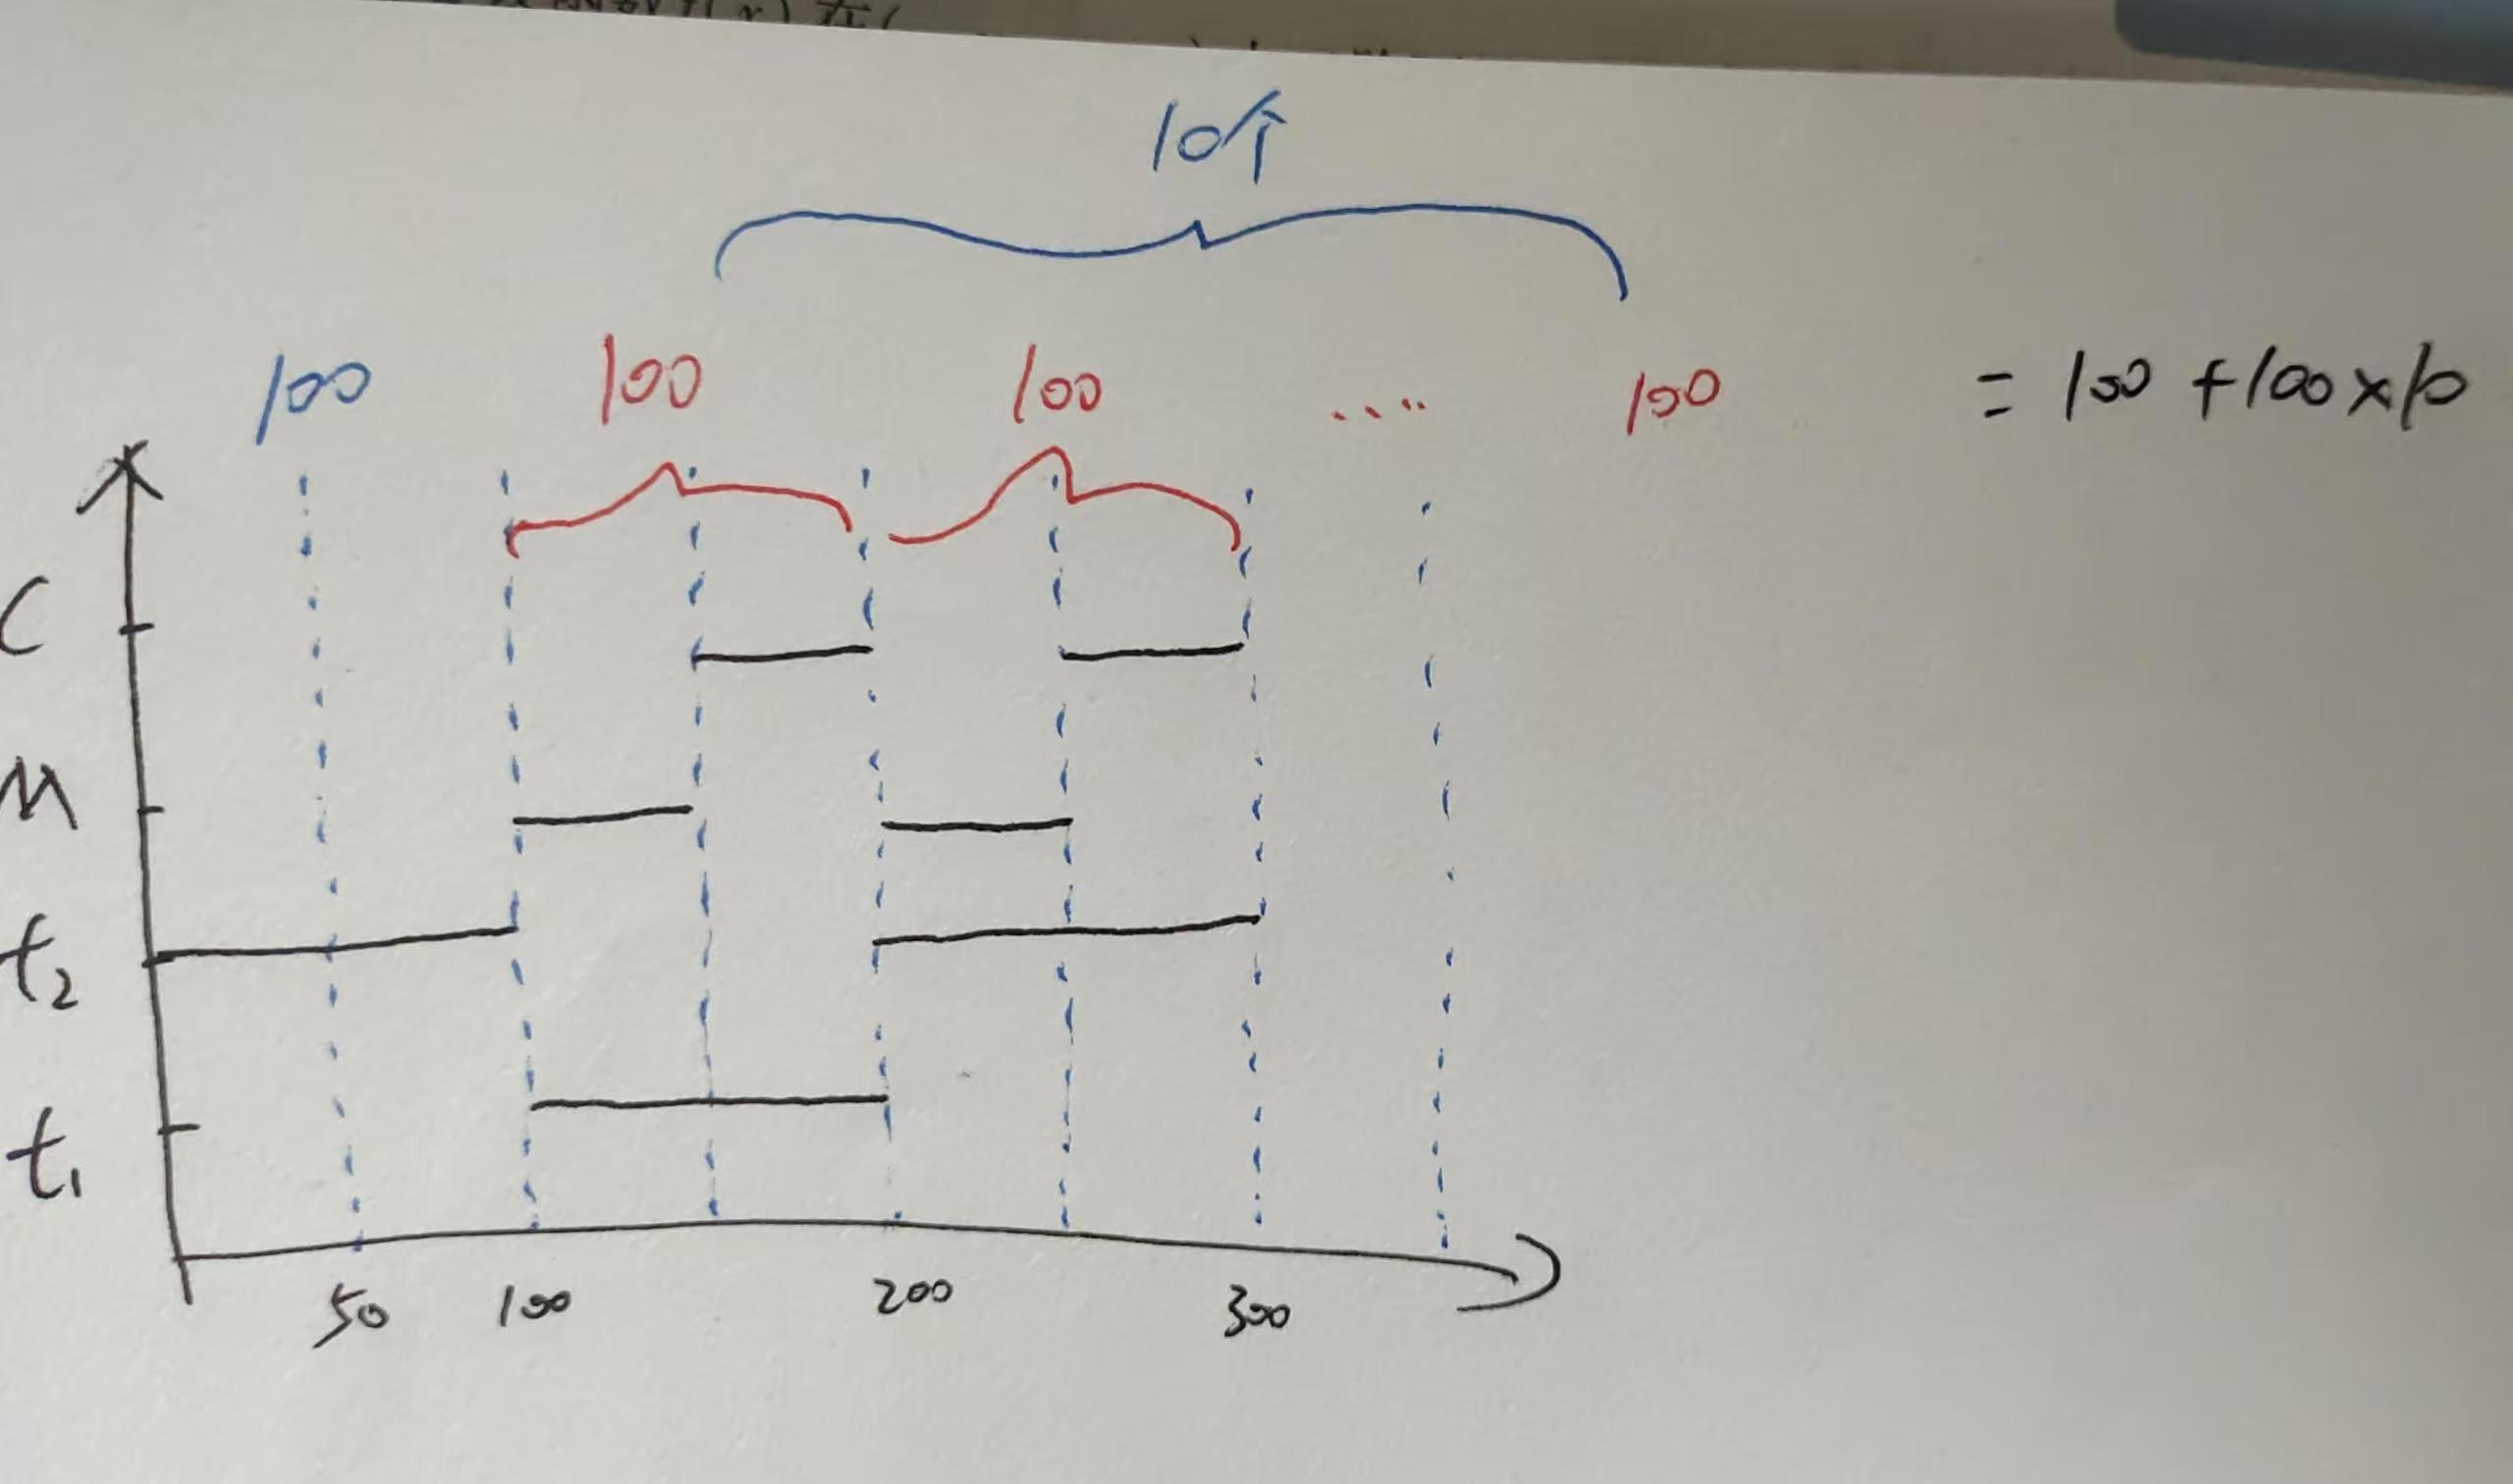 10个
100 100 100 .... 100 = 100 + 100 × 10
C
M
t2
t1
50 100 200 300